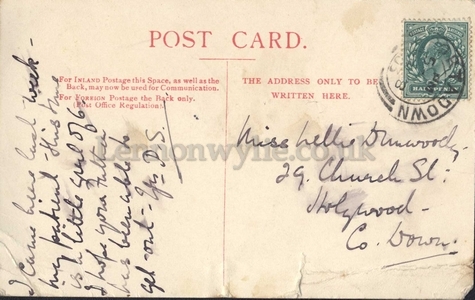 POST CARD.
For INLAND Postage this Space, as well as the
Back, may now be used for Communication.
For FOREIGN Postage the Back only.
(Post Office Regulation).
THE ADDRESS ONLY TO BE
WRITTEN HERE.
I came here last week-
my patient this time
is a little girl of 6
I hope your Father
has been able to
get out - Yrs D.S.
Miss Nellie Dunwoody
29. Church St:
Holywood-
Co. Down.
HALFPENNY
DOWN
Lennonwylie.co.uk